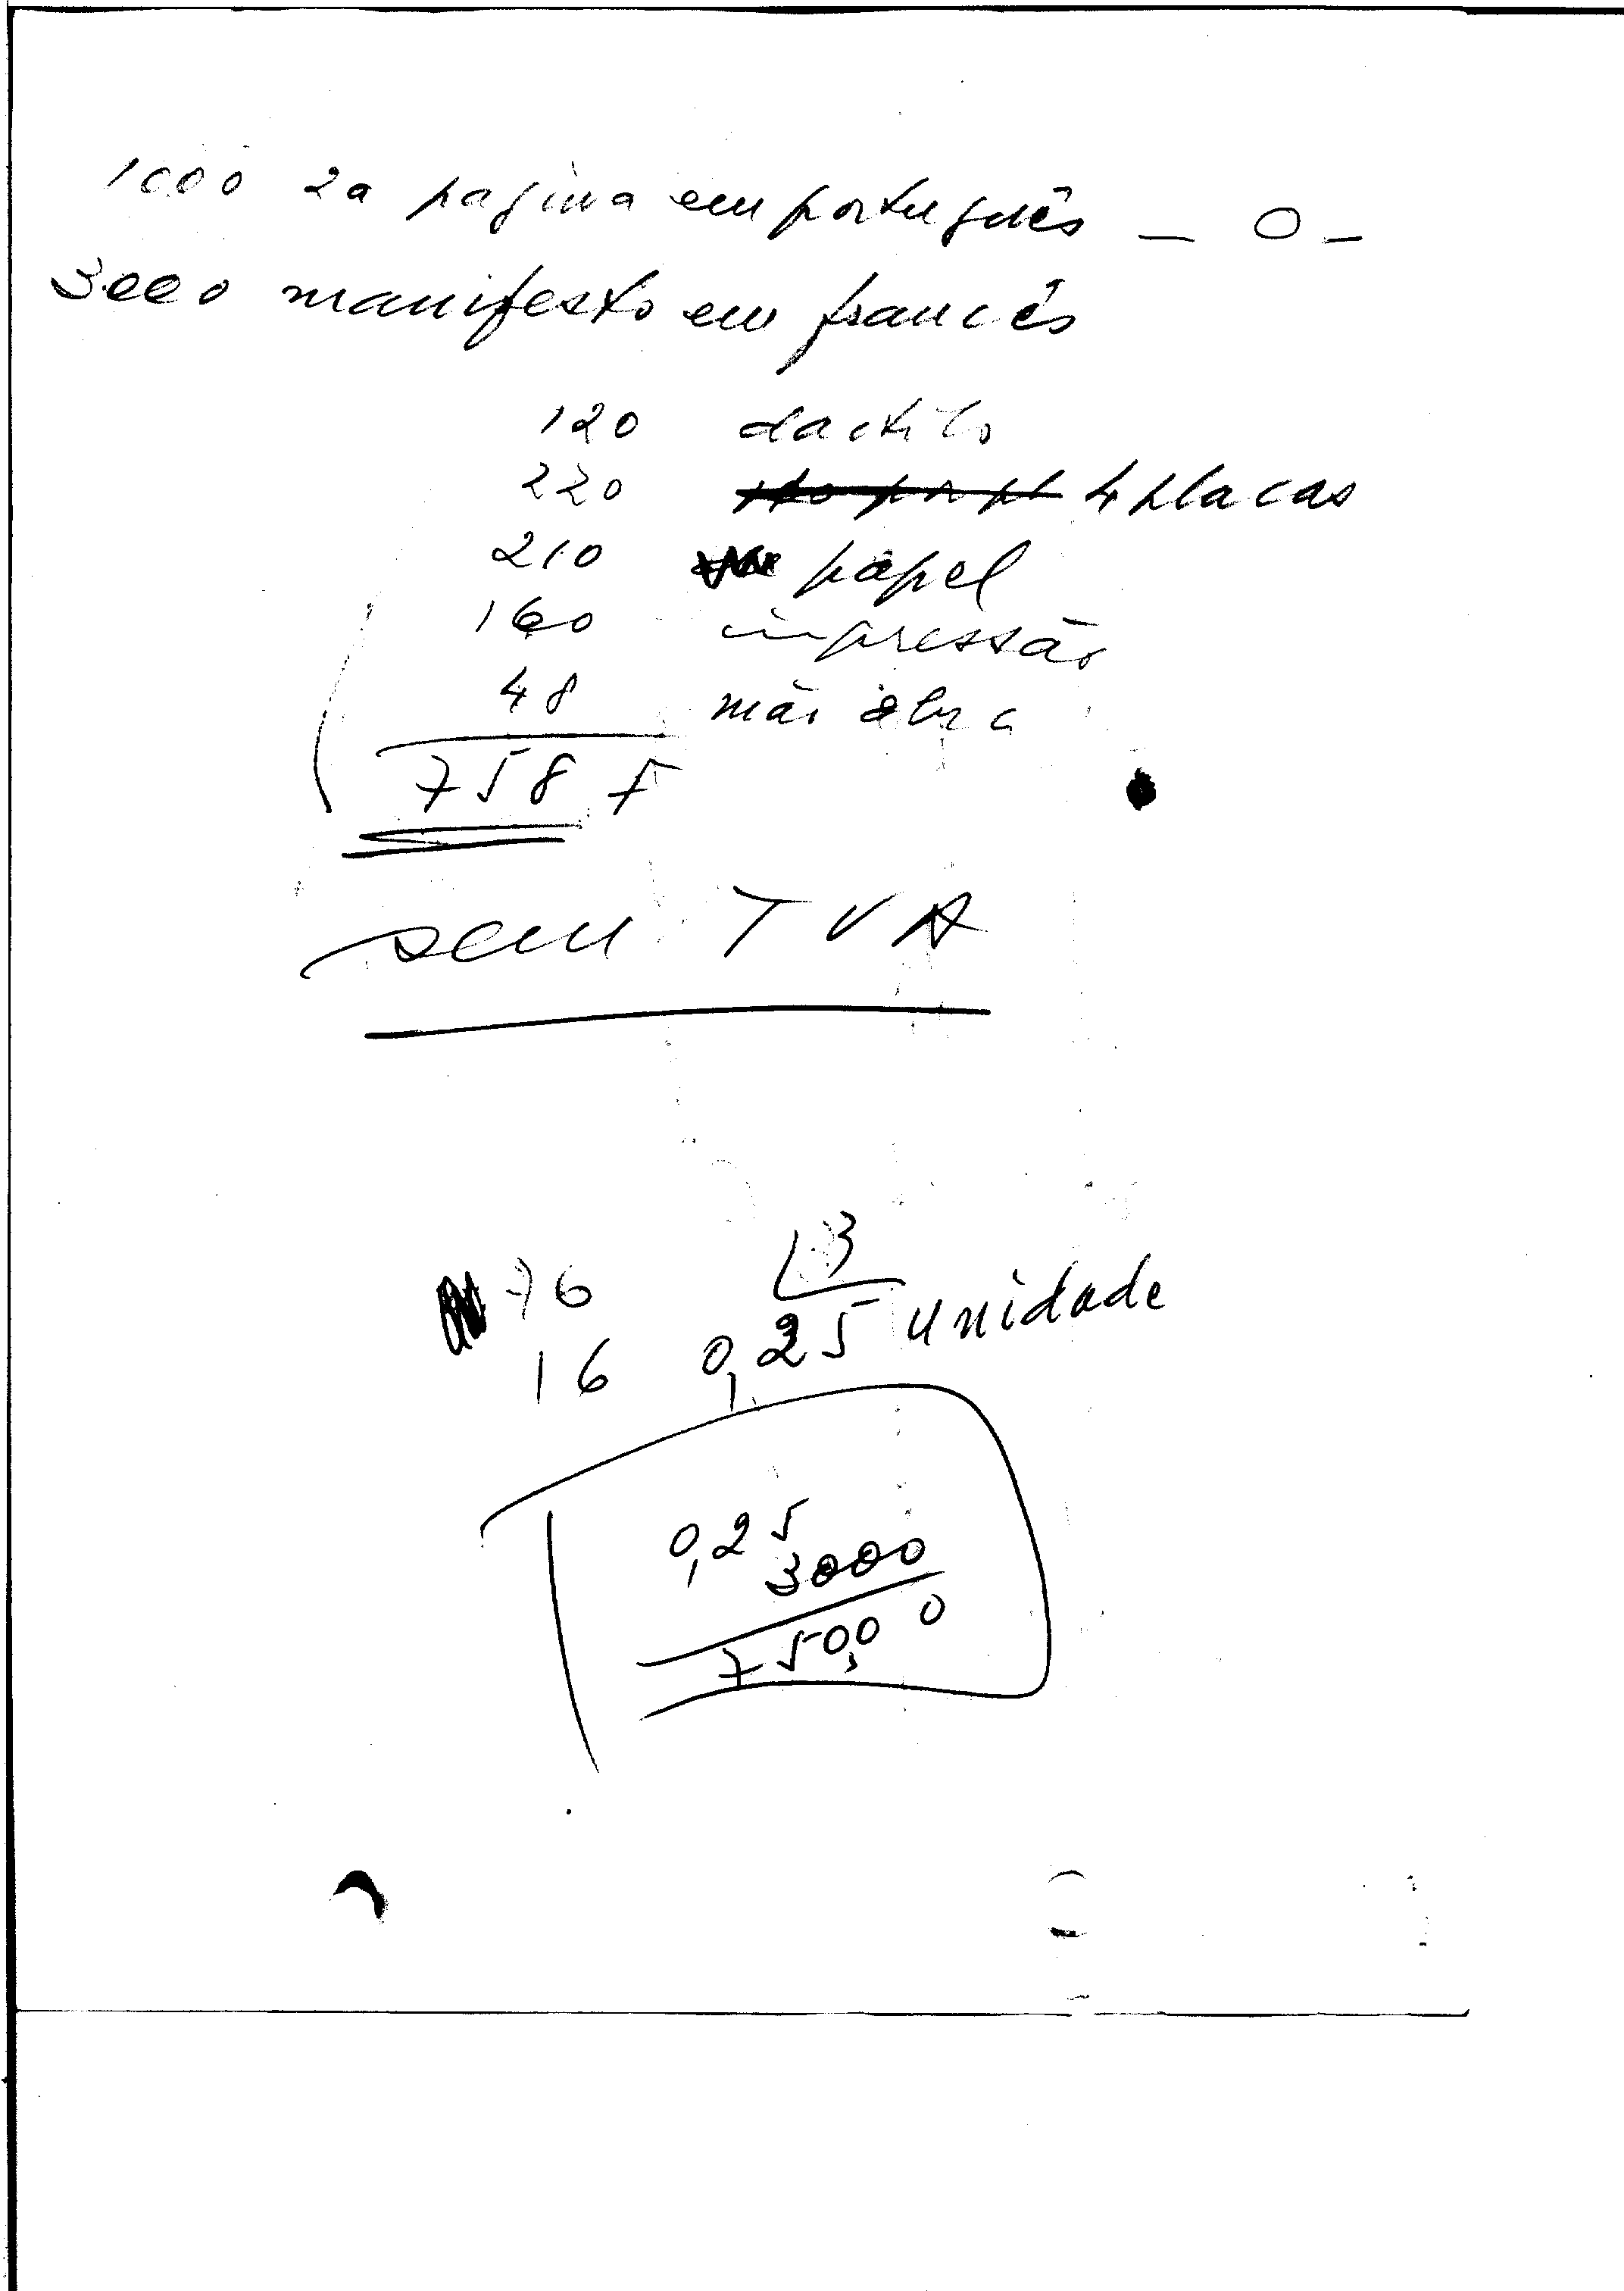 1000 2a pagina em português _ 0 _
3000 manifesto em francês
120 dactilo
220 4 placas
210 papel
160 impressão
48 mão obra
758 F
sem TVA
76 3
16 0,25 unidade
0,25
3000
750,00